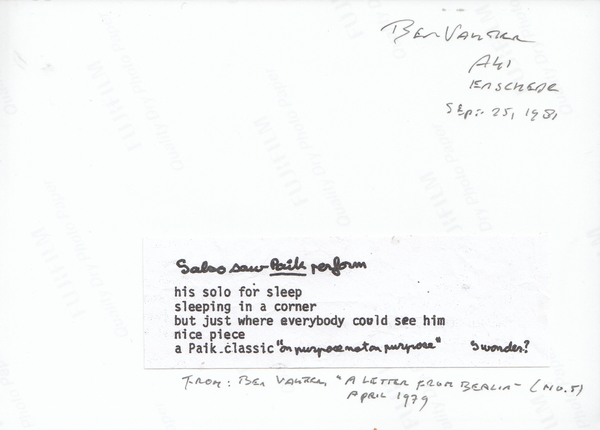 BEN VAUTIER
AKI
ENSCHEDE
Sept. 25, 1981
I also saw Paik perform
his solo for sleep
sleeping in a corner
but just where everybody could see him
nice piece
a Paik classic "on purpose not on purpose" I wonder?
FROM: BEN VAUTIER, "A LETTER FROM BERLIN" (NO. 5)
APRIL 1979
FUJIFILM
Quality Dry Photo Paper